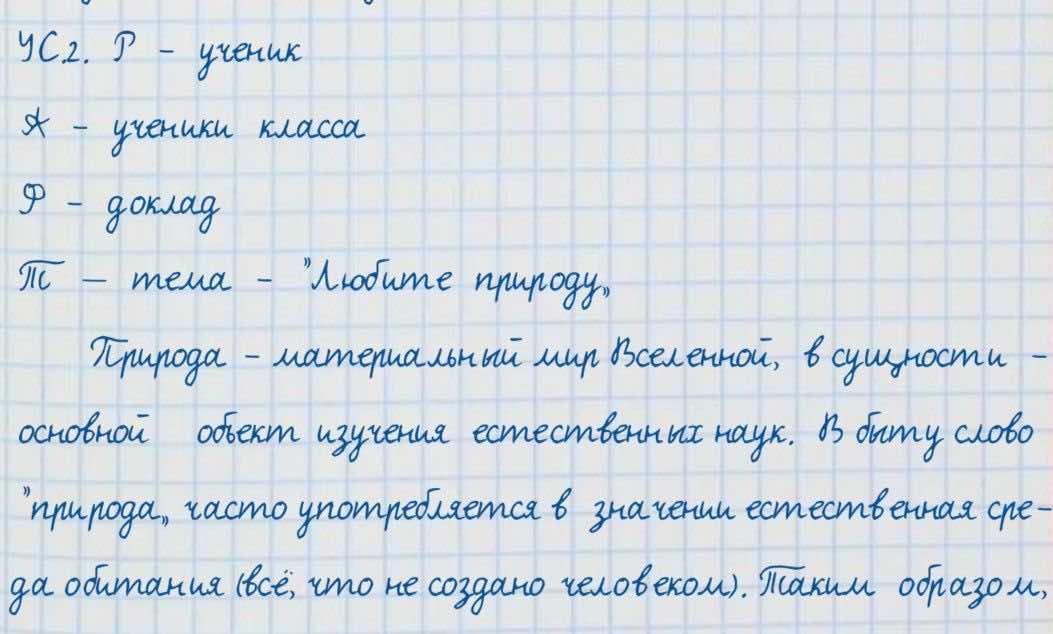 УС.2. Р - ученик
А - ученики класса
Ф - доклад
Т — тема - "Любите природу„
Природа - материальный мир Вселенной, в сущности -
основной объект изучения естественных наук. В быту слово
"природа„ часто употребляется в значении естественная сре-
да обитания (всё, что не создано человеком). Таким образом,